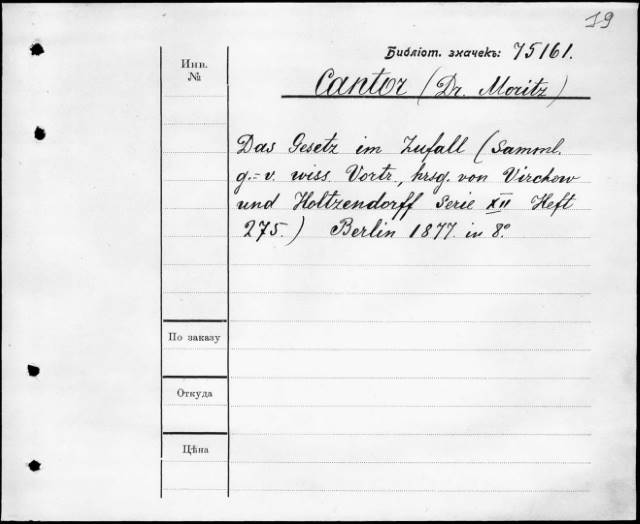 19
Библіот. значекъ: 75161.
Инв.
№
Cantor (Dr. Moritz)
Das Gesetz im Zufall (Samml.
g.-v. wiss. Vortr., hrsg. von Virchow
und Holtzendorff Serie XII Heft
275.) Berlin 1877. in 8.º
По заказу
Откуда
Цѣна